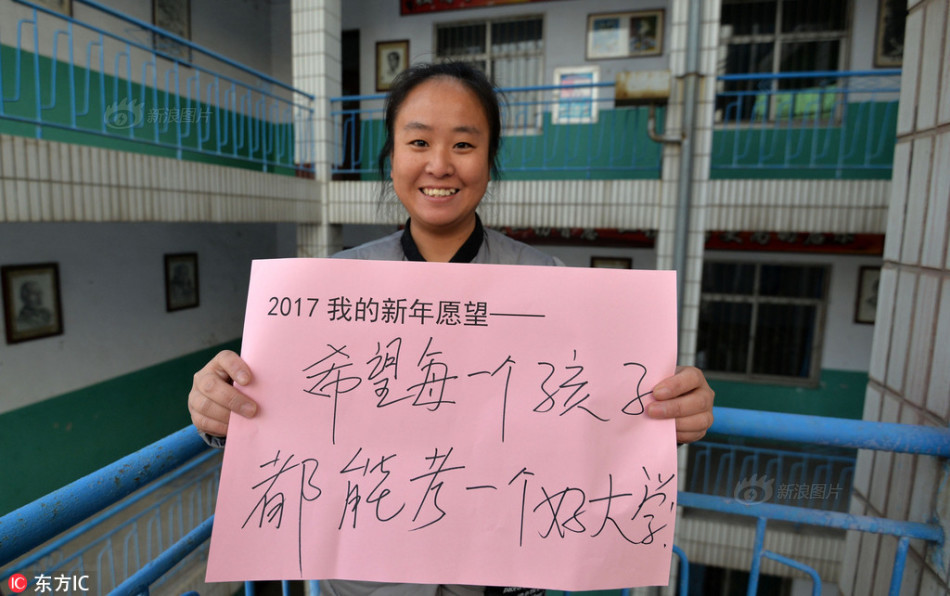 2017 我的新年愿望——
希望每一个孩子
都能考一个好大学!
新浪图片
新浪图片
东方IC